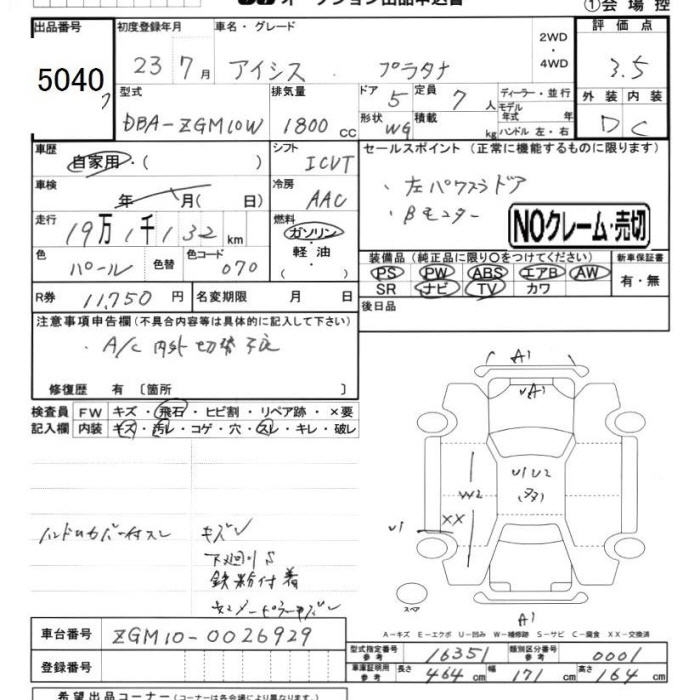 ①会場控
出品番号 初度登録年月 車名・グレード 2WD・4WD 評価点
5040 23 7月 アイシス プラタナ 3.5
型式 排気量 ドア 5 定員 7人 ディーラー・並行 外装 内装
DBA-ZGM10W 1800cc 形状 WG 積載 kg モデル年式 年式 ハンドル 左・右 D C
車歴 自家用・( ) シフト ICVT セールスポイント (正常に機能するものに限ります)
車検 年 月( 日) 冷房 AAC ・左パワスラドア
・Bモニター
走行 19万1千132km 燃料 ガソリン・軽油・( ) NOクレーム・売切
色 パール 色替 色コード 070
装備品 (純正品に限り○をつけてください) 新車保証書
PS PW ABS エアB AW 有・無
SR ナビ TV カワ
R券 11,750円 名変期限 月 日 後日品
注意事項申告欄(不具合内容等は具体的に記入して下さい)
・A/C 内外切替不良
修復歴 有 〔箇所 〕
検査員 FW キズ・飛石・ヒビ割・リペア跡・×要
記入欄 内装 キズ・汚レ・コゲ・穴・スレ・キレ・破レ
A1
A1
U1U2
(多)
W2
XX
U1
ハンドルカバー付スレ キズ
下廻りS
鉄粉付着
スペア
A1
A-キズ E-エクボ U-凹み W-補修跡 S-サビ C-腐食 XX-交換済
車台番号 ZGM10-0026929 型式指定番号 参考 16351 類別区分番号 参考 0001
登録番号 車庫証明用 参考 長さ 464cm 幅 171cm 高さ 164cm
希望出品コーナー(コーナーは各会場により異なります。)